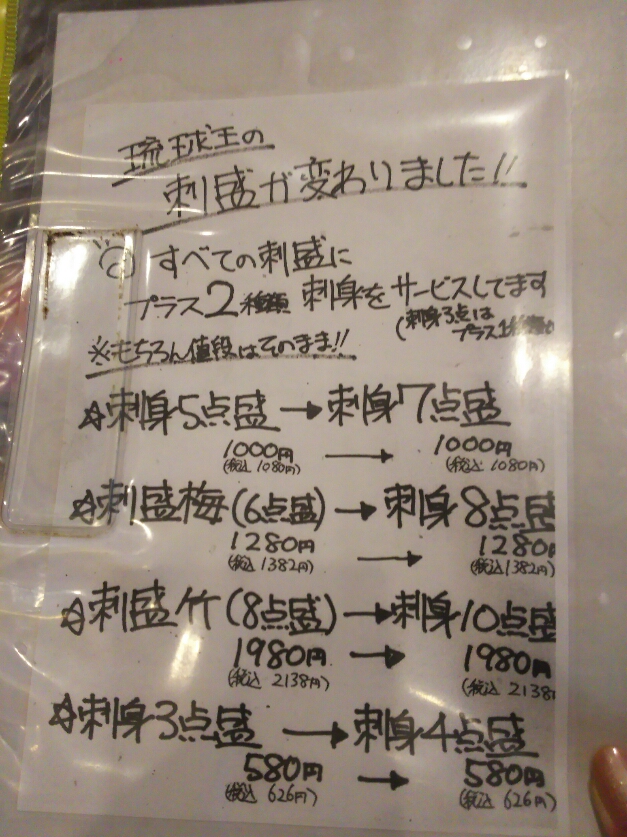 琉球王の
刺盛が変わりました!!
◎ すべての刺盛に
プラス2種類 刺身をサービスしてます
(刺身3点は
プラス1種類
※もちろん値段はそのまま!!
☆刺身5点盛 → 刺身7点盛
1000円 → 1000円
(税込 1080円) (税込 1080円)
☆刺盛梅(6点盛) → 刺身8点盛
1280円 → 1280円
(税込 1382円) (税込 1382円)
☆刺盛竹(8点盛) → 刺身10点盛
1980円 → 1980円
(税込 2138円) (税込 2138円
☆刺身3点盛 → 刺身4点盛
580円 → 580円
(税込 626円) (税込 626円)